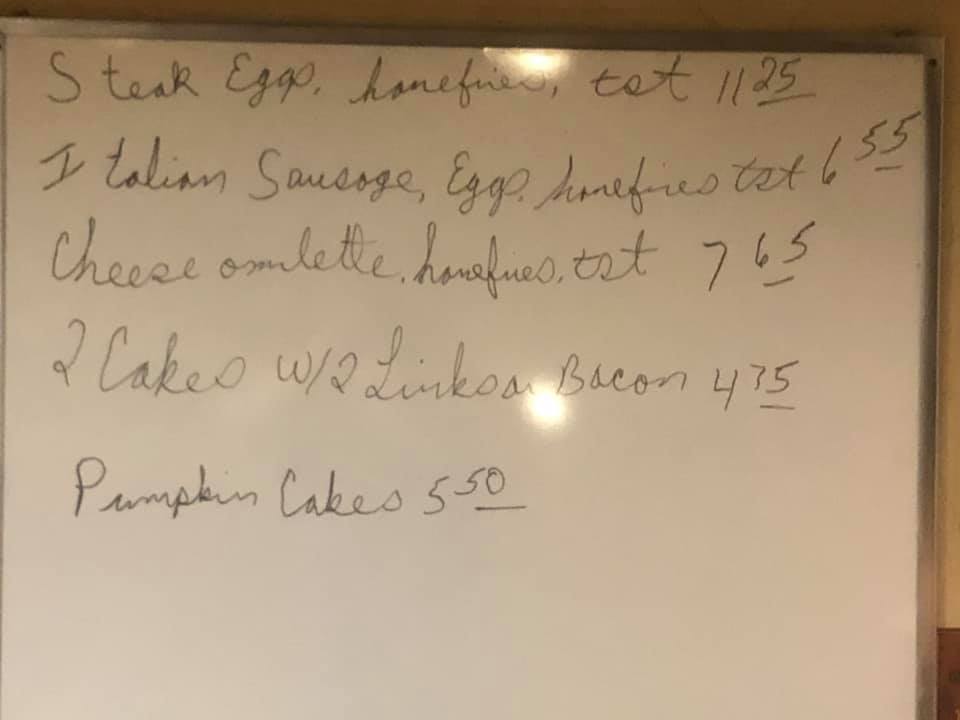 Steak Eggs, homefries, tst 11 25
Italian Sausage, Eggs, homefries tst 6 55
Cheese omlette, homefries, tst 7 65
2 Cakes w/2 Links or Bacon 4 35
Pumpkin Cakes 5 50